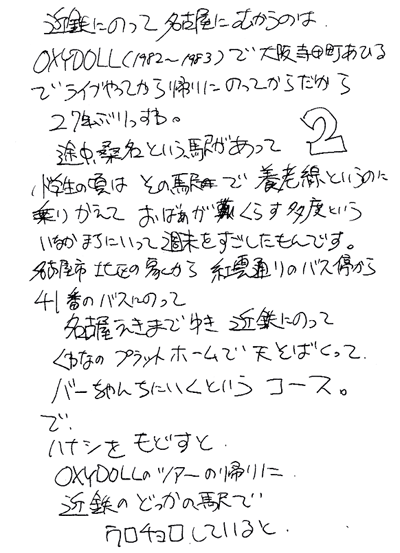 近鉄にのって名古屋にむかうのは.
OXYDOLL(1982〜1983)で大阪寺田町あひる
でライブやってから帰りにのってからだから
27年ぶりっす。
2
途中、桑名という駅があって
小学生の頃は その駅で 養老線というのに
乗りかえて おばあが くらす多度という
いなか町にいって週末をすごしたもんです。
名古屋市 北区の家から 紅雲通りのバス停から
41番のバスにのって
名古屋えきまでゆき 近鉄にのって
くわなの プラットホームで 天そばくって.
バーちゃんちにいくという コース。
で.
ハナシを もどすと.
OXYDOLLのツアーの帰りに.
近鉄の どっかの駅で
ウロチョロしていると.